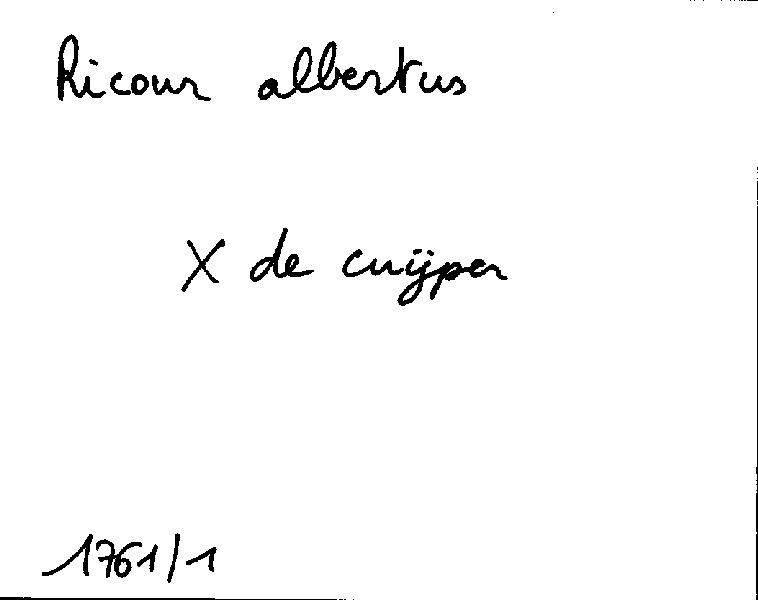 Ricour albertus
X de cuijper
1761/1